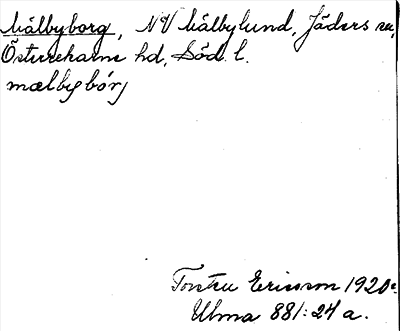 Målbyborg, NV Målbylund, Jäders sn,
Österrekarne hd, Söd. l.
mælbybórj
Torsten Ericsson 1920
Ulma 881:24 a.